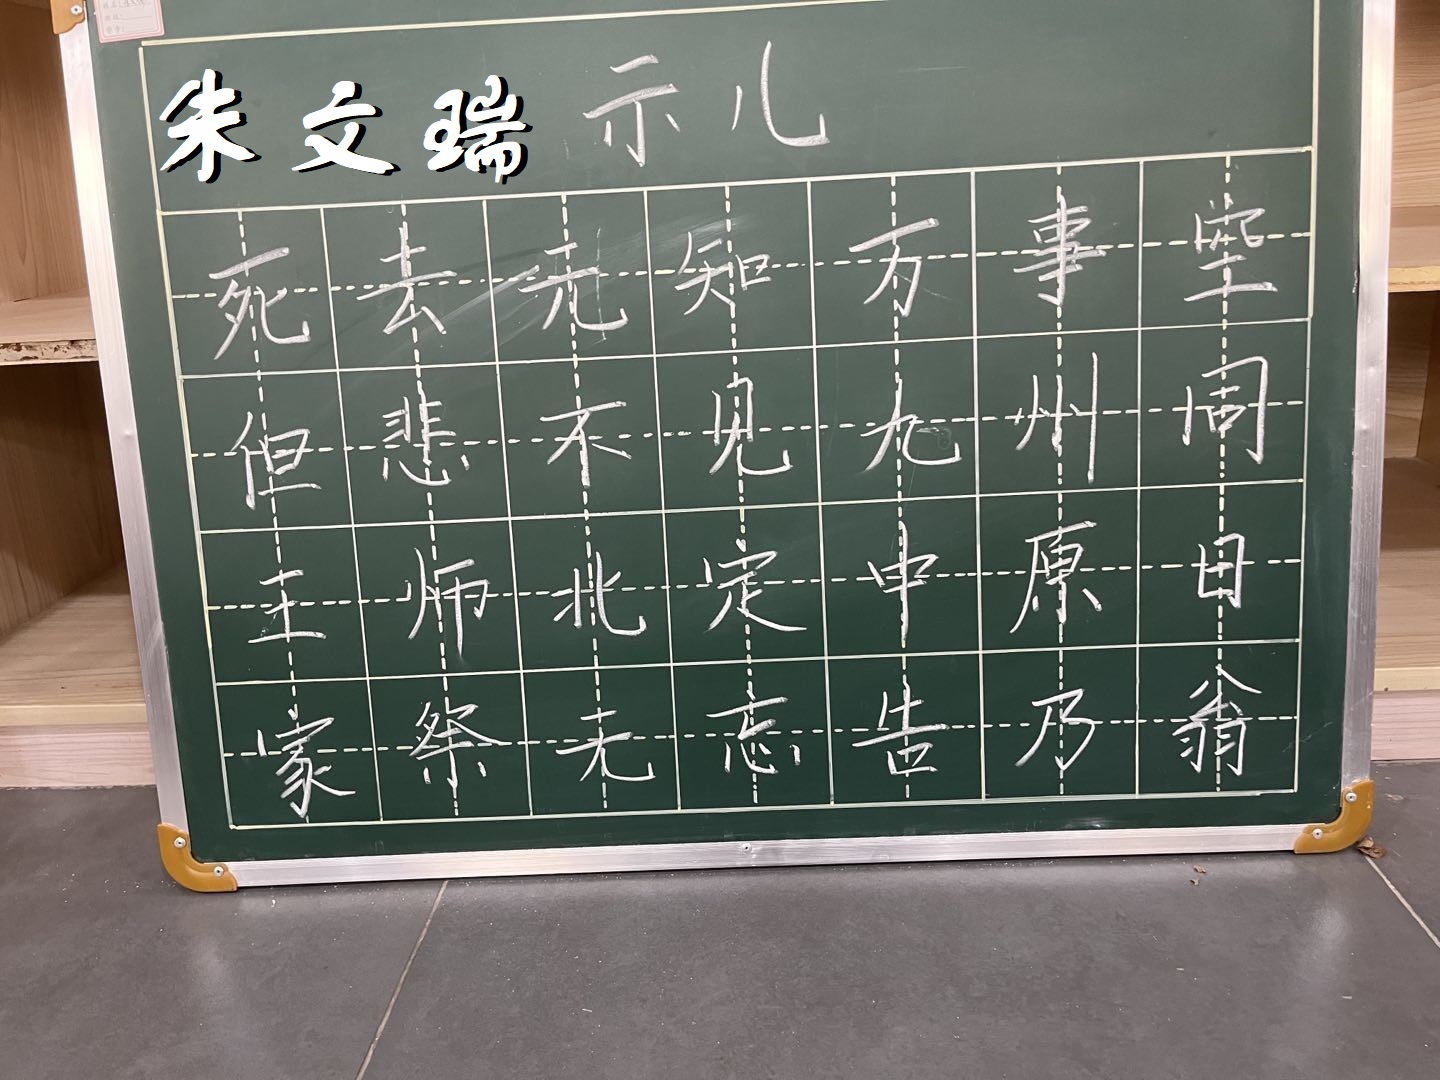 朱文瑞 示儿
死去元知万事空
但悲不见九州同
王师北定中原日
家祭无忘告乃翁